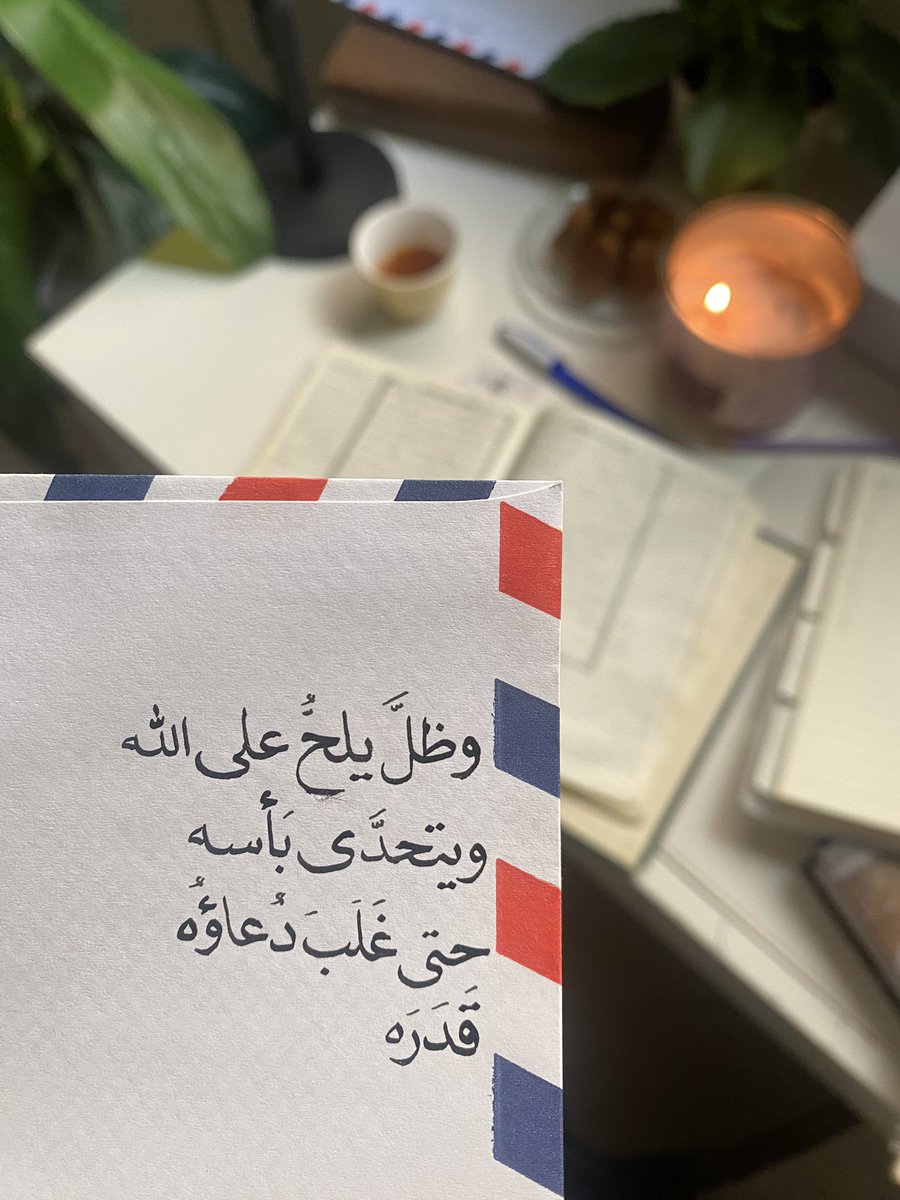 وظلَّ يلحُّ على الله
ويتحدَّى بَأسه
حتى غَلَبَ دُعاؤُه
قَدَرَه